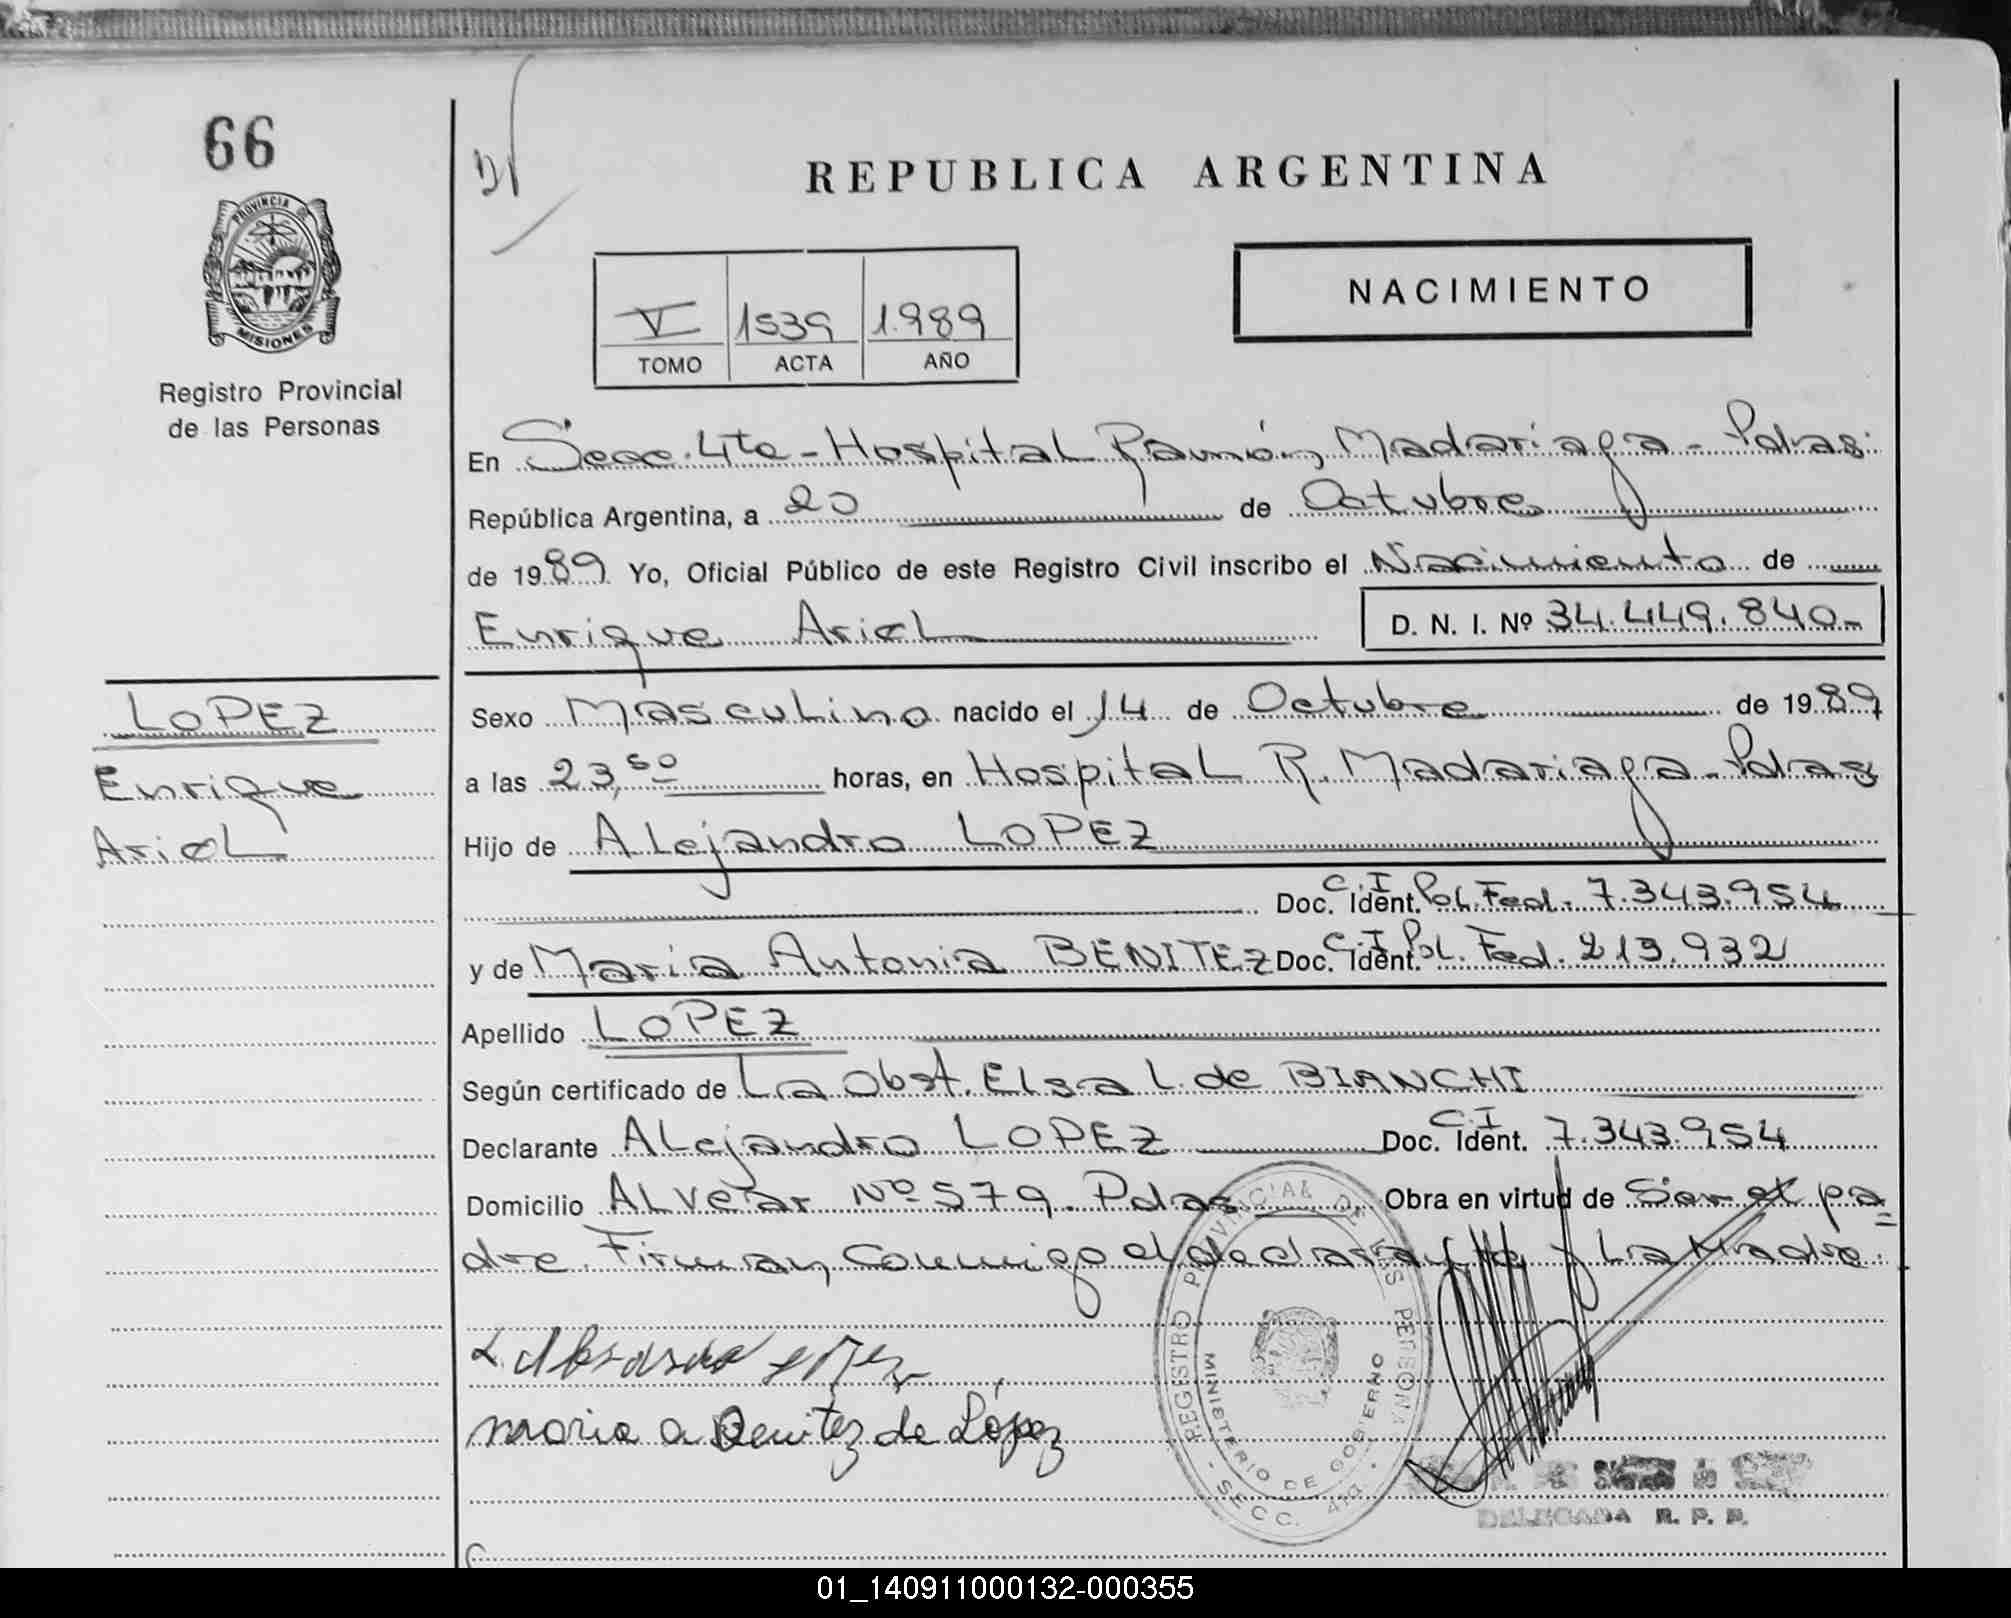 66
REPUBLICA ARGENTINA
PROVINCIA DE
MISIONES
Registro Provincial
de las Personas
V 1539 1.989
TOMO ACTA AÑO
NACIMIENTO
En Secc. 4ta - Hospital Ramón Madariaga - Pdas.
República Argentina, a 20 de Octubre
de 1989 Yo, Oficial Público de este Registro Civil inscribo el Nacimiento de
Enrique Ariel D. N. I. Nº 34.449.840-
LOPEZ
Enrique
Ariel
Sexo Masculino nacido el 14 de Octubre de 1989
a las 23,50 horas, en Hospital R. Madariaga - Pdas
Hijo de Alejandro LOPEZ
Doc. Ident. C.I Pol. Fed. 7.343.954
y de Maria Antonia BENITEZ Doc. Ident. C.I Pol. Fed. 213.932
Apellido LOPEZ
Según certificado de La Obst. Elsa L. de BIANCHI
Declarante Alejandro LOPEZ Doc. Ident. C.I 7.343.954
Domicilio Alvear Nº 579. Pdas Obra en virtud de Ser el pa=
dre. Firman conmigo el declarante y La Madre.
maria a Benitez de López
REGISTRO PROVINCIAL DE LAS PERSONAS
MINISTERIO DE GOBIERNO
SECC. 4ta.
DELEGADA R. P. P.
01_140911000132-000355